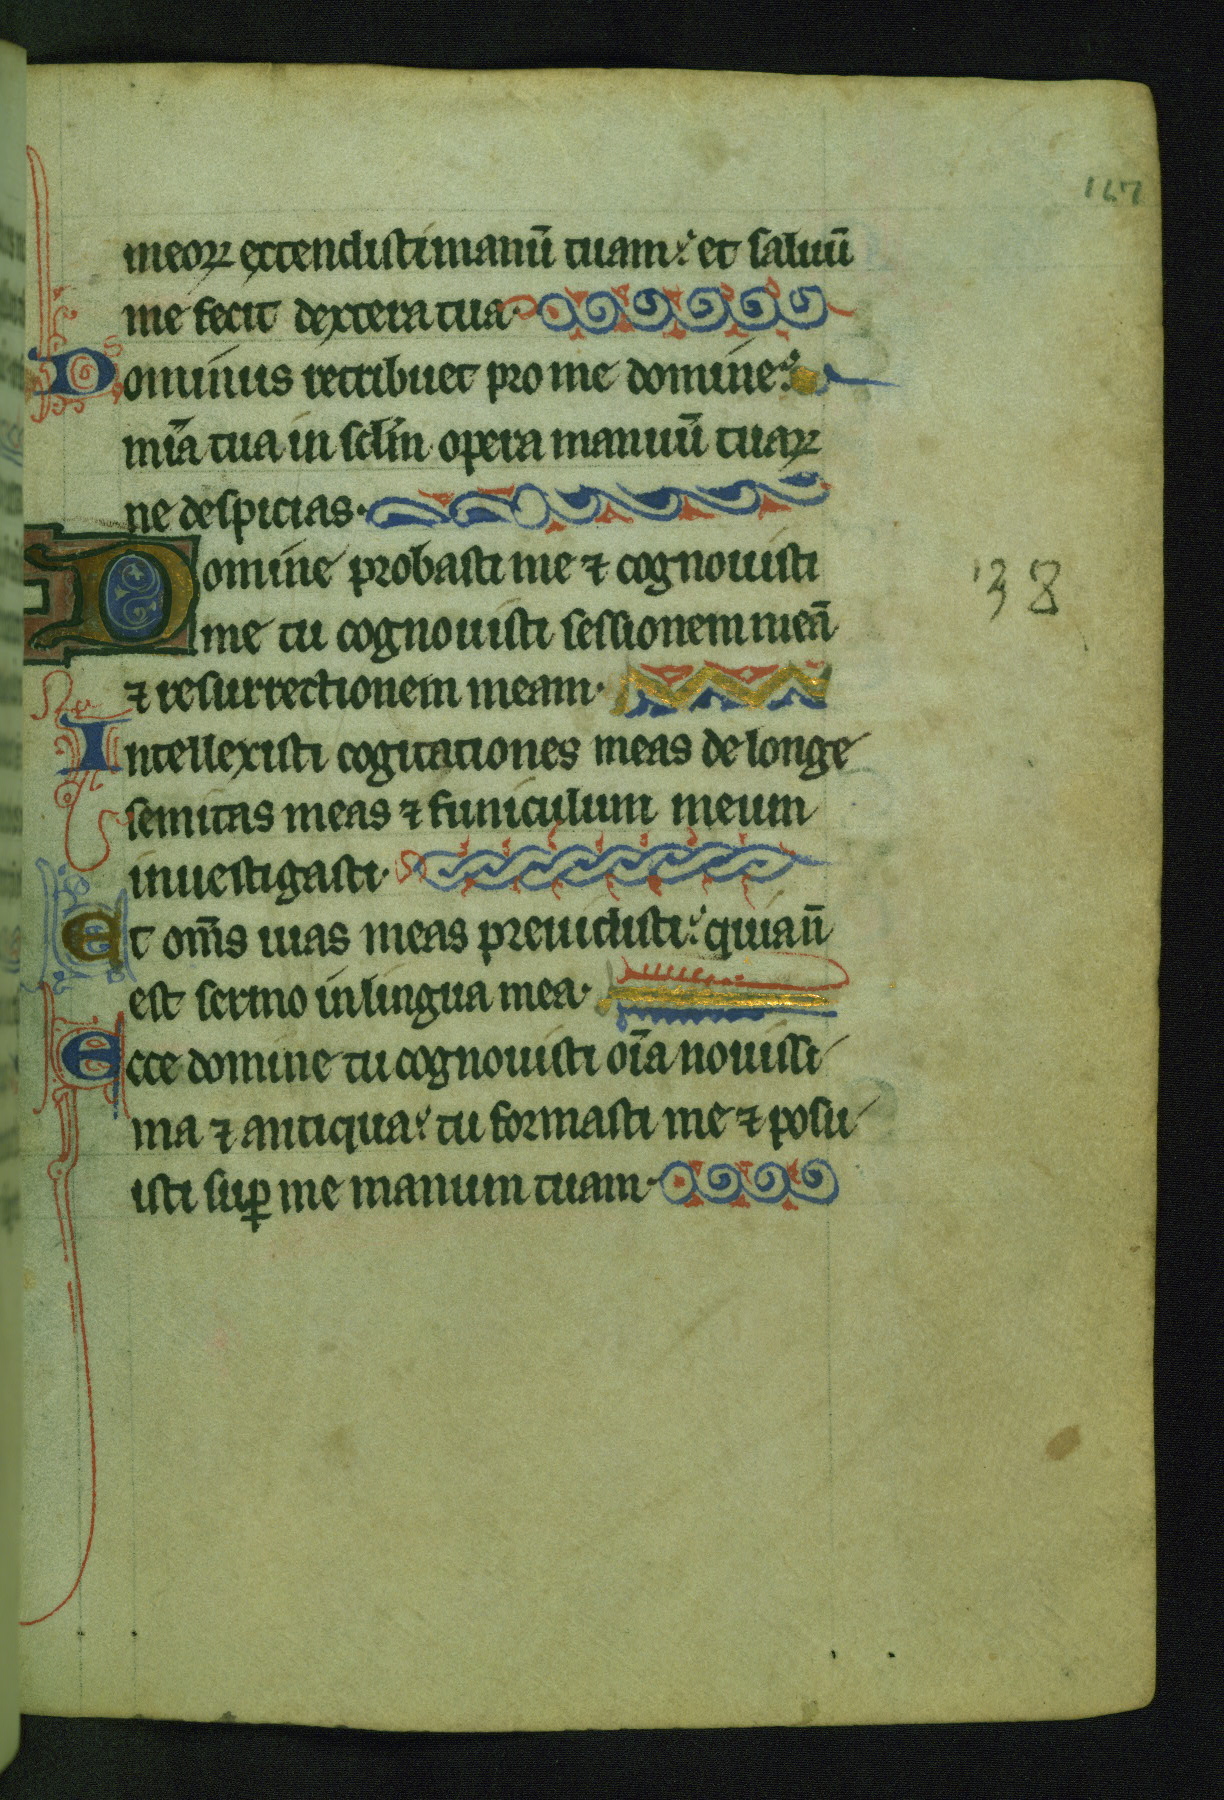 167
meoꝝ extendisti manū tuam et saluū
me fecit dextera tua
Dominus retribuet pro me domine
mīa tua in sclm̄ opera manuū tuaꝝ
ne despicias
Domine probasti me ⁊ cognouisti
138
me tu cognouisti sessionem meā
⁊ resurrectionem meam
Intellexisti cogitationes meas de longe
semitas meas ⁊ funiculum meum
inuestigasti
Et om̄s uias meas preuidisti quia n̄
est sermo in lingua mea
Ecce domine tu cognouisti oīa nouissi
ma ⁊ antiqua tu formasti me ⁊ posu
isti suꝑ me manum tuam